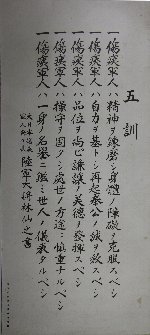 五訓
一 傷痍軍人ハ精神ヲ錬磨シ身體ノ障碍ヲ克服スベシ
一 傷痍軍人ハ自力ヲ基トシ再起奉公ノ誠ヲ致スベシ
一 傷痍軍人ハ品位ヲ尚ビ謙譲ノ美徳ヲ發揮スベシ
一 傷痍軍人ハ操守ヲ固クシ處世ノ方途ニ慎重ナルベシ
一 傷痍軍人ハ一身ノ名譽ニ鑑ミ世人ノ儀表タルベシ
陸軍大将林仙之書